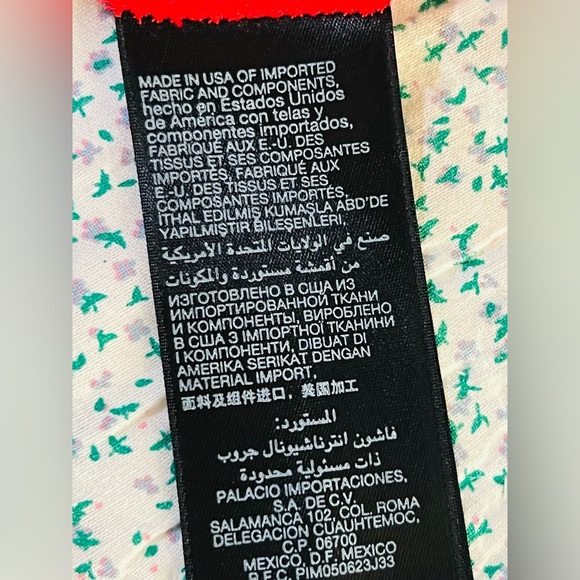 MADE IN USA OF IMPORTED
FABRIC AND COMPONENTS,
hecho en Estados Unidos
de América con telas y
componentes importados,
FABRIQUÉ AUX E.-U. DES
TISSUS ET SES COMPOSANTES
IMPORTÉS, FABRIQUÉ AUX
E.-U. DES TISSUS ET SES
COMPOSANTES IMPORTÉS,
ITHAL EDILMIŞ KUMAŞLA ABD'DE
YAPILMIŞTIR BILEŞENLERI,
صنع في الولايات المتحدة الأمريكية
من أقمشة مستوردة والمكونات
ИЗГОТОВЛЕНО В США ИЗ
ИМПОРТИРОВАННОЙ ТКАНИ
И КОМПОНЕНТЫ, ВИРОБЛЕНО
В США З ІМПОРТНОЇ ТКАНИНИ
І КОМПОНЕНТИ, DIBUAT DI
AMERIKA SERIKAT DENGAN
MATERIAL IMPORT,
面料及组件进口，美国加工
المستورد:
فاشون انترناشيونال جروب
ذات مسئولية محدودة
PALACIO IMPORTACIONES,
S.A. DE C.V.
SALAMANCA 102, COL. ROMA
DELEGACION CUAUHTEMOC,
C.P. 06700
MEXICO, D.F. MEXICO
R.F.C. PIM050623J33